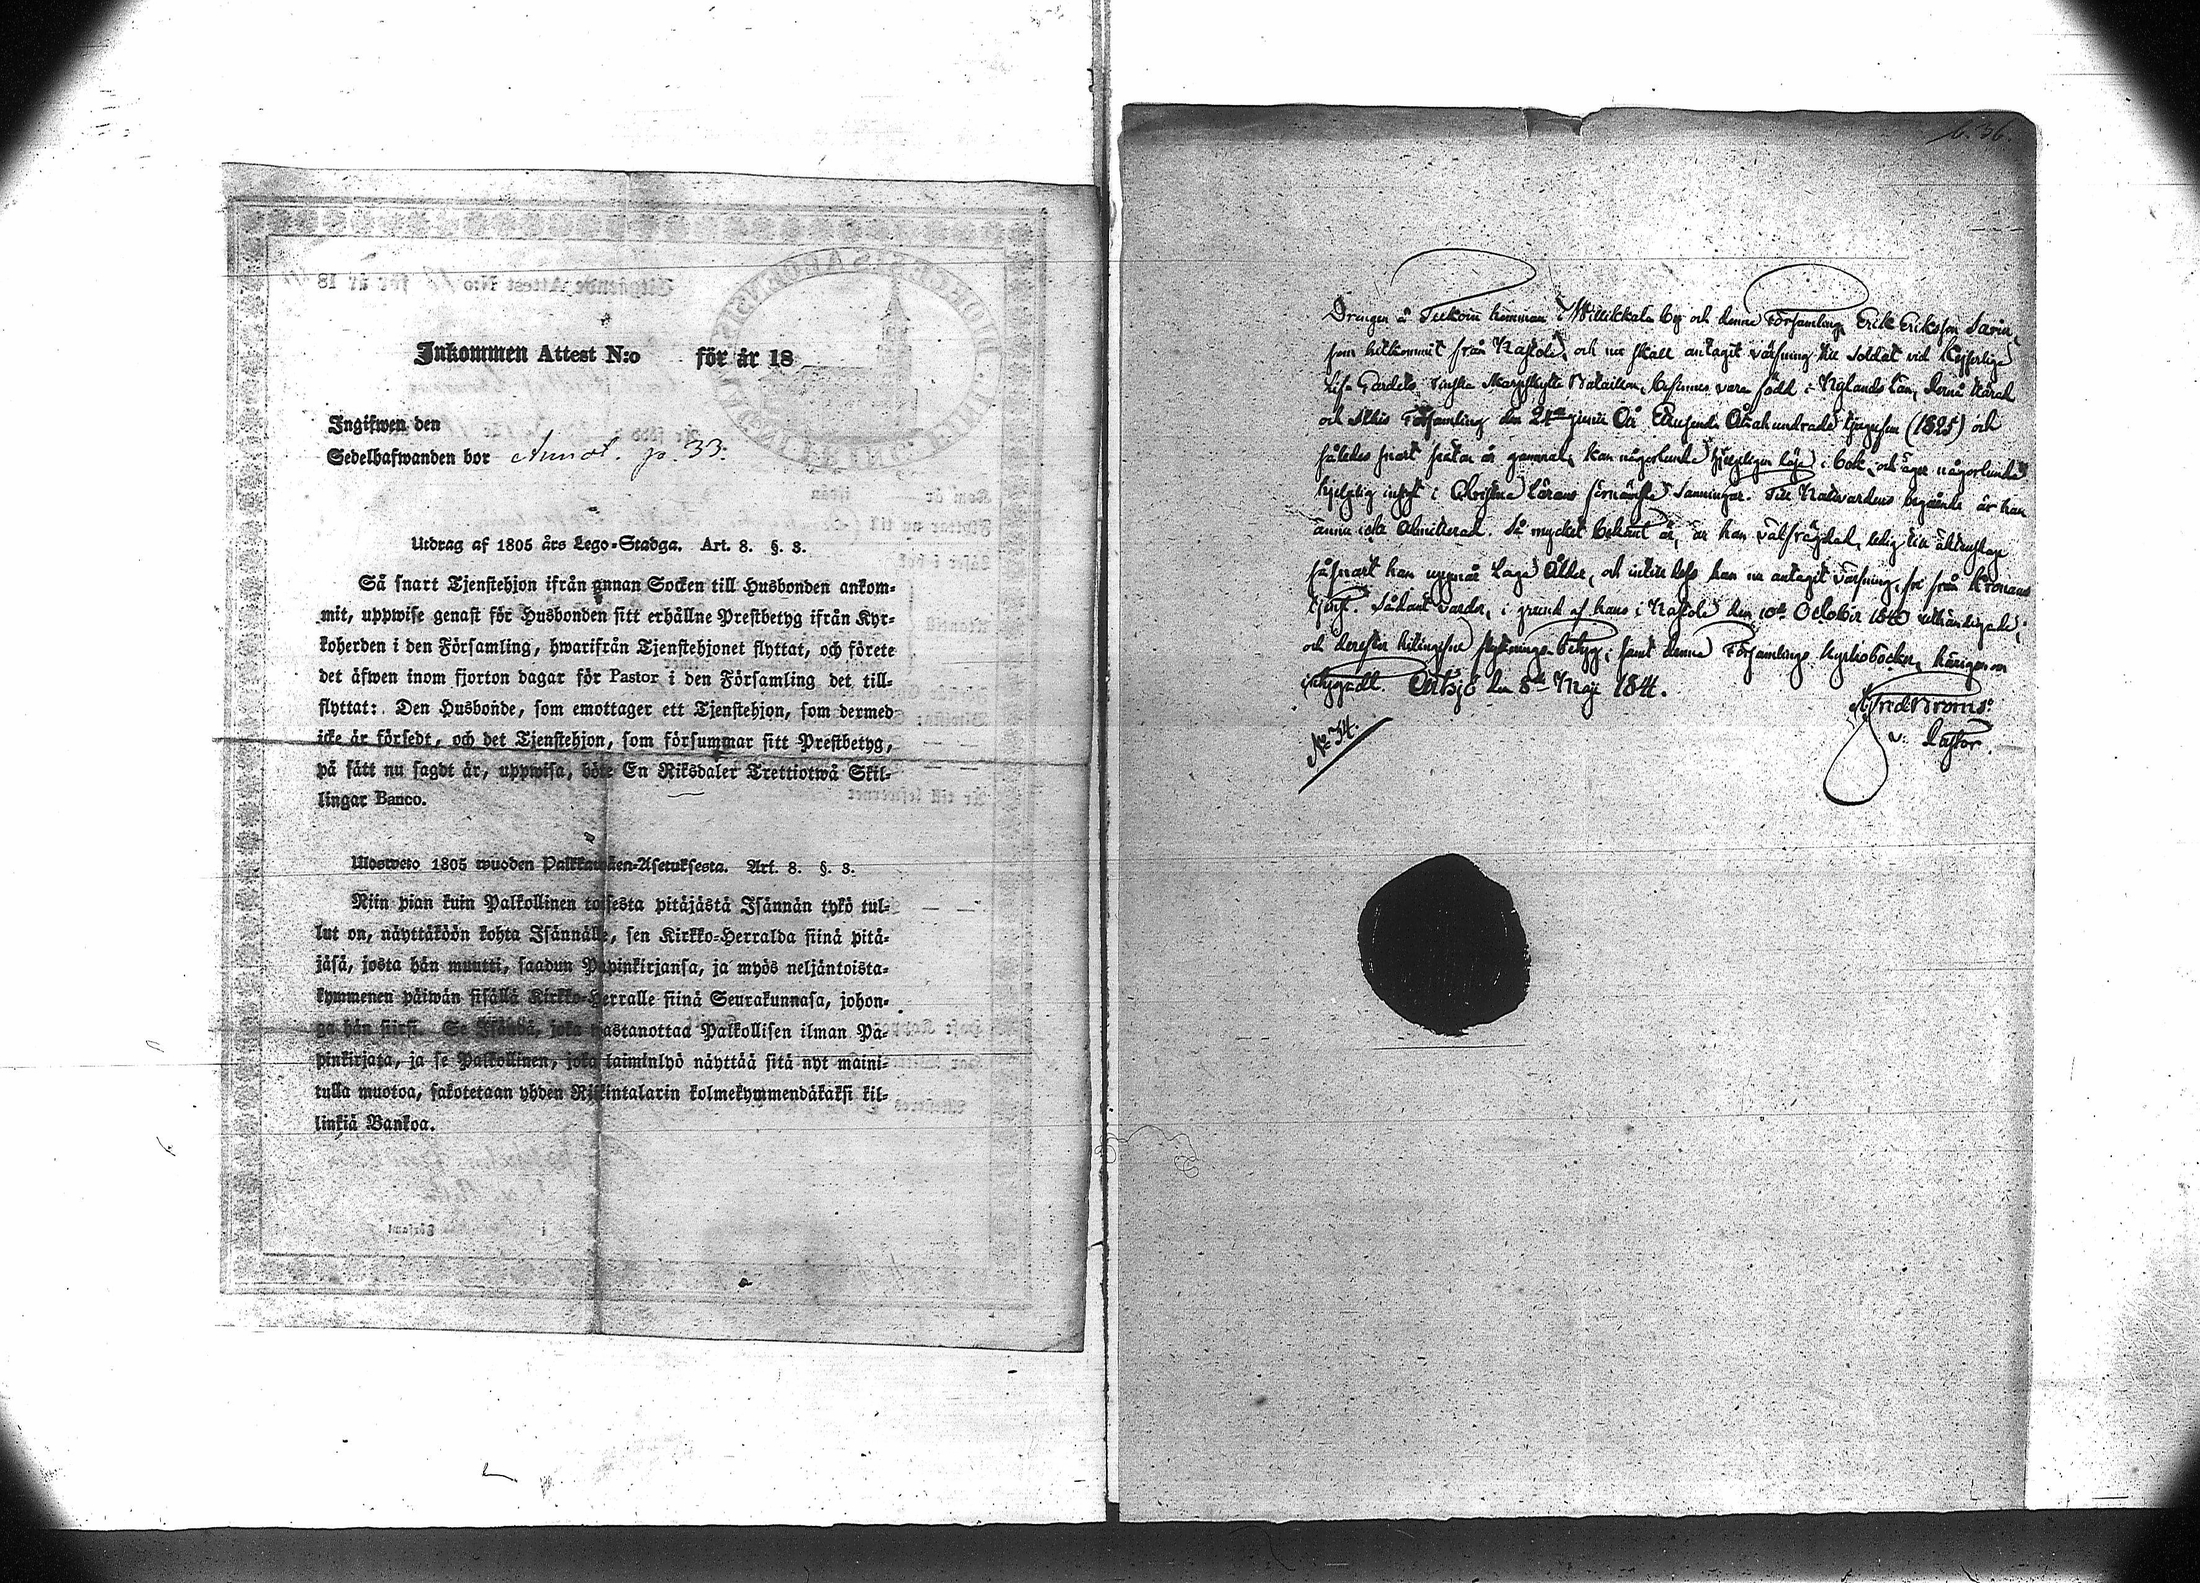 Inkommen Attest N:o för år 18
Ingifwen den
Sedelhafwanden bor Annot. p. 33.
Utdrag af 1805 års Lego-Stadga. Art. 8. §. 3.
Så snart Tjenstehjon ifrån annan Socken till Husbonden ankom-
mit, uppwise genast för Husbonden sitt erhållne Prestbetyg ifrån Kyr-
koherden i den Församling, hwarifrån Tjenstehjonet flyttat, och förete
det äfwen inom fjorton dagar för Pastor i den Församling det till-
flyttat: Den Husbonde, som emottager ett Tjenstehjon, som dermed
icke är försedt, och det Tjenstehjon, som försummar sitt Prestbetyg,
på sätt nu sagdt är, uppwisa, böte En Riksdaler Trettiotwå Skil-
lingar Banco.
Ulosweto 1805 wuoden Palkkawäen-Asetuksesta. Art. 8. §. 3.
Niin pian kuin Palkollinen toisesta pitäjästä Isännän tykö tul-
lut on, näyttäköön kohta Isännälle, sen Kirkko-Herralda siinä pitä-
jäsä, josta hän muutti, saadun Papinkirjansa, ja myös neljäntoista-
kymmenen päiwän sisällä Kirkko-Herralle siinä Seurakunnasa, johon-
ga hän siirsi. Se Isändä, joka wastanottaa Palkollisen ilman Pa-
pinkirjata, ja se Palkollinen, joka laiminlyö näyttää sitä nyt maini-
tulla muotoa, sakotetaan yhden Riksintalarin kolmekymmendäkaksi kil-
linkiä Bankoa.
6. 36.
Drengen å hemman i Willikkala by och denna Församling Erik Eriksson Savin,
som hitkommit från Nastola, och nu skall antagit värfning till Soldat vid Kejserliga
Lif-Gardets Finska Skarpskytte Bataillon, befinnes vara född i Nylands Län, Pernå Härad
och Församling den 24 Junii År Ettusende Åttahundrade tjugufem (1825) och
således snart år gammal, kan någorlunda hjelpligen läsa i bok, och äger någorlunda
hjelplig insigt i Christna Lärans förnämsta Sanningar. Till Nattvardens begående är han
ännu icke Admitterad. Så mycket bekant är, är han välfrägdad, ledig till äktenskap
såsnart han uppnår Laga Ålder, och intill dess han nu antagit värfning, fri från Kronans
tjenst. Sådant varder, i grund af hans i Nastola den 10de October 1840
och derefter flyttnings-betyg, samt denna Församlings Kyrkoböcker, härigenom
intygadt. Artsjö den 8de Maji 1844.
v. Pastor.
No 34.